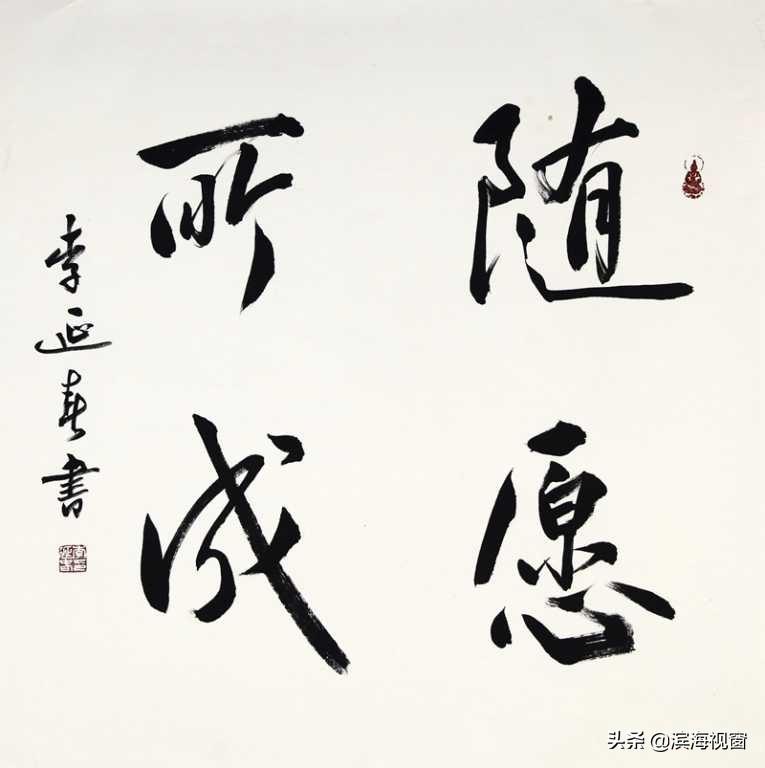 随愿
所成
李延春書
头条 @滨海视窗